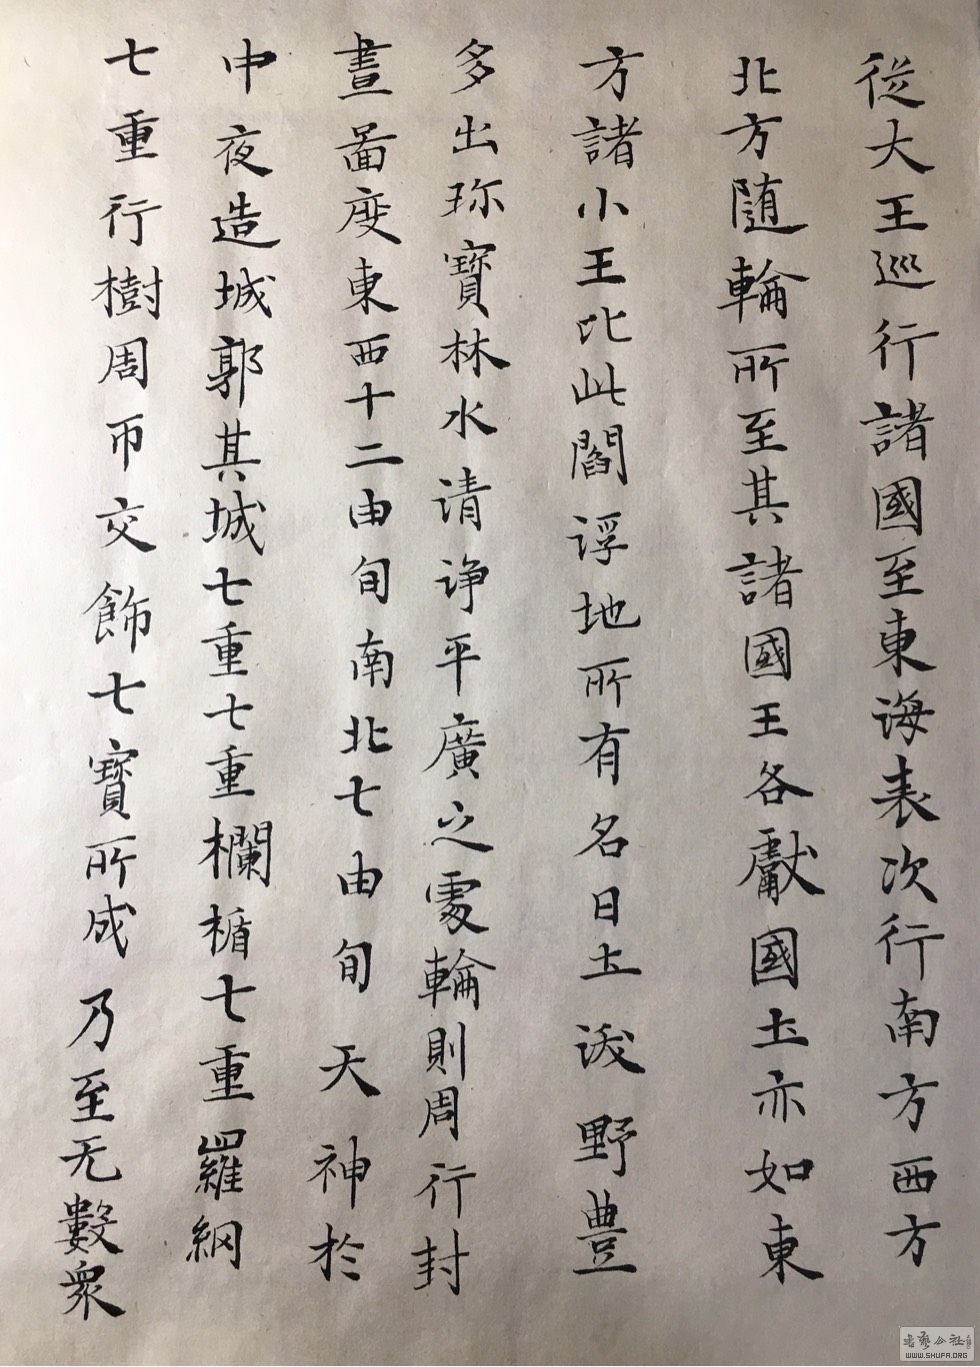 從大王巡行諸國至東海表次行南方西方
北方随輪所至其諸國王各獻國土亦如東
方諸小王比此閻浮地所有名曰土沃野豊
多出珎寶林水清淨平廣之處輪則周行封
畫啚度東西十二由旬南北七由旬天神於
中夜造城郭其城七重七重欄楯七重羅網
七重行樹周帀交飾七寶所成乃至无數衆
WWW.SHUFA.ORG